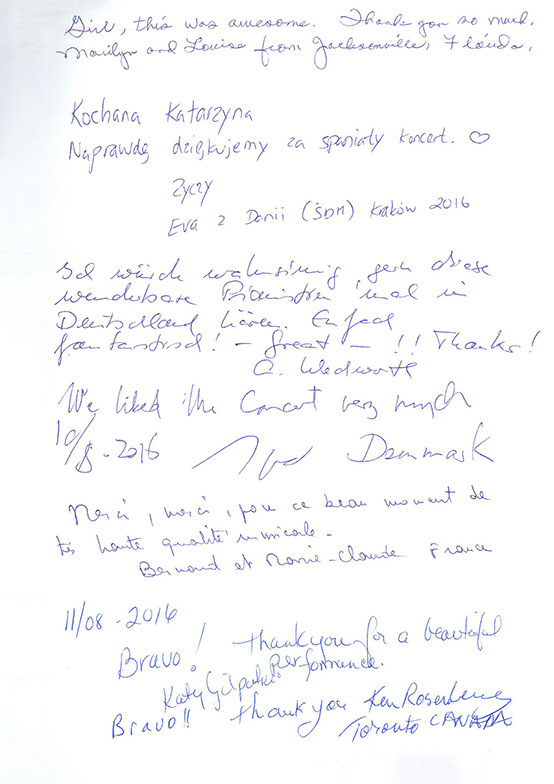 Girl, this was awesome. Thank you so much.
Marilyn and Louise from Jacksonville, Florida.
Kochana Katarzyna
Naprawdę dziękujemy za spaniały koncert. ♡
życzy
Eva z Danii (ŚDM) Kraków 2016
Ich würde wahnsinnig gern diese
wunderbare Pianistin 'mal in
Deutschland hören. Einfach
fantastisch! – Great – !! Thanks!
We liked the Concert very much
10/8 - 2016 Danmark
Merci, merci, pour ce beau moment de
très haute qualité musicale -
Bernard et Marie-Claude France
11/08 - 2016
Bravo! thank you for a beautiful
Performance.
Katy
Bravo!! thank you Ken
Toronto CANADA